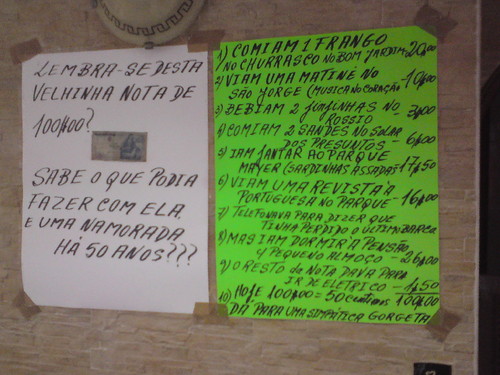 LEMBRA-SE DESTA
VELHINHA NOTA DE
100$00?
SABE O QUE PODIA
FAZER COM ELA.
E UMA NAMORADA
HÁ 50 ANOS???
1) COMIAM 1 FRANGO
NO CHURRASCO NO BOM JARDIM- 20$00
2) VIAM UMA MATINÉ NO
SÃO JORGE (MUSICA NO CORAÇÃO 10$00
3) BEBIAM 2 GINJINHAS NO
ROSSIO - 3$00
4) COMIAM 2 SANDES NO SOLAR
DOS PRESUNTOS - 6$00
5) IAM JANTAR AO PARQUE
MAYER (SARDINHAS ASSADAS- 17$50
6) VIAM UMA REVISTA À
PORTUGUESA NO PARQUE - 16$00
7) TELEFONAVA PARA DIZER QUE
TINHA PERDIDO O ULTIMO BARCO
8) MAS IAM DORMIR À PENSÃO,
PEQUENO ALMOÇO - 26$00
9) O RESTO DA NOTA DAVA PARA
IR DE ELETRICO - 1$50
10) HOJE 100$00 = 50 CENTIMOS 100$00
DÁ PARA UMA SIMPÁTICA GORGETA